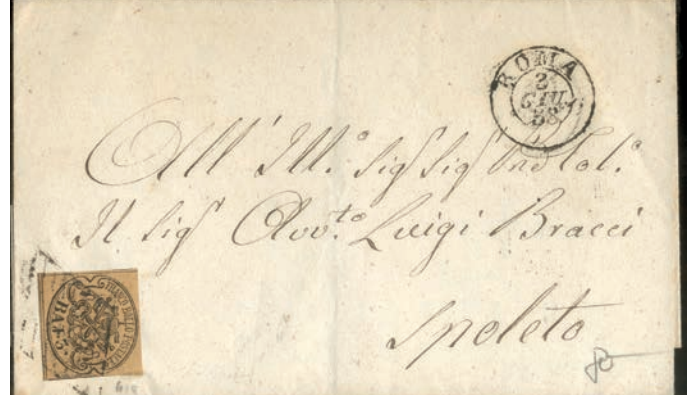 ROMA
3
GIU.
58
All' Ill.º Sigʳ Sigʳ Prō Col.º
Il Sigʳ Avv.tº Luigi Bracci
Spoleto
FRANCO BOLLO POSTALE
BAJ 3